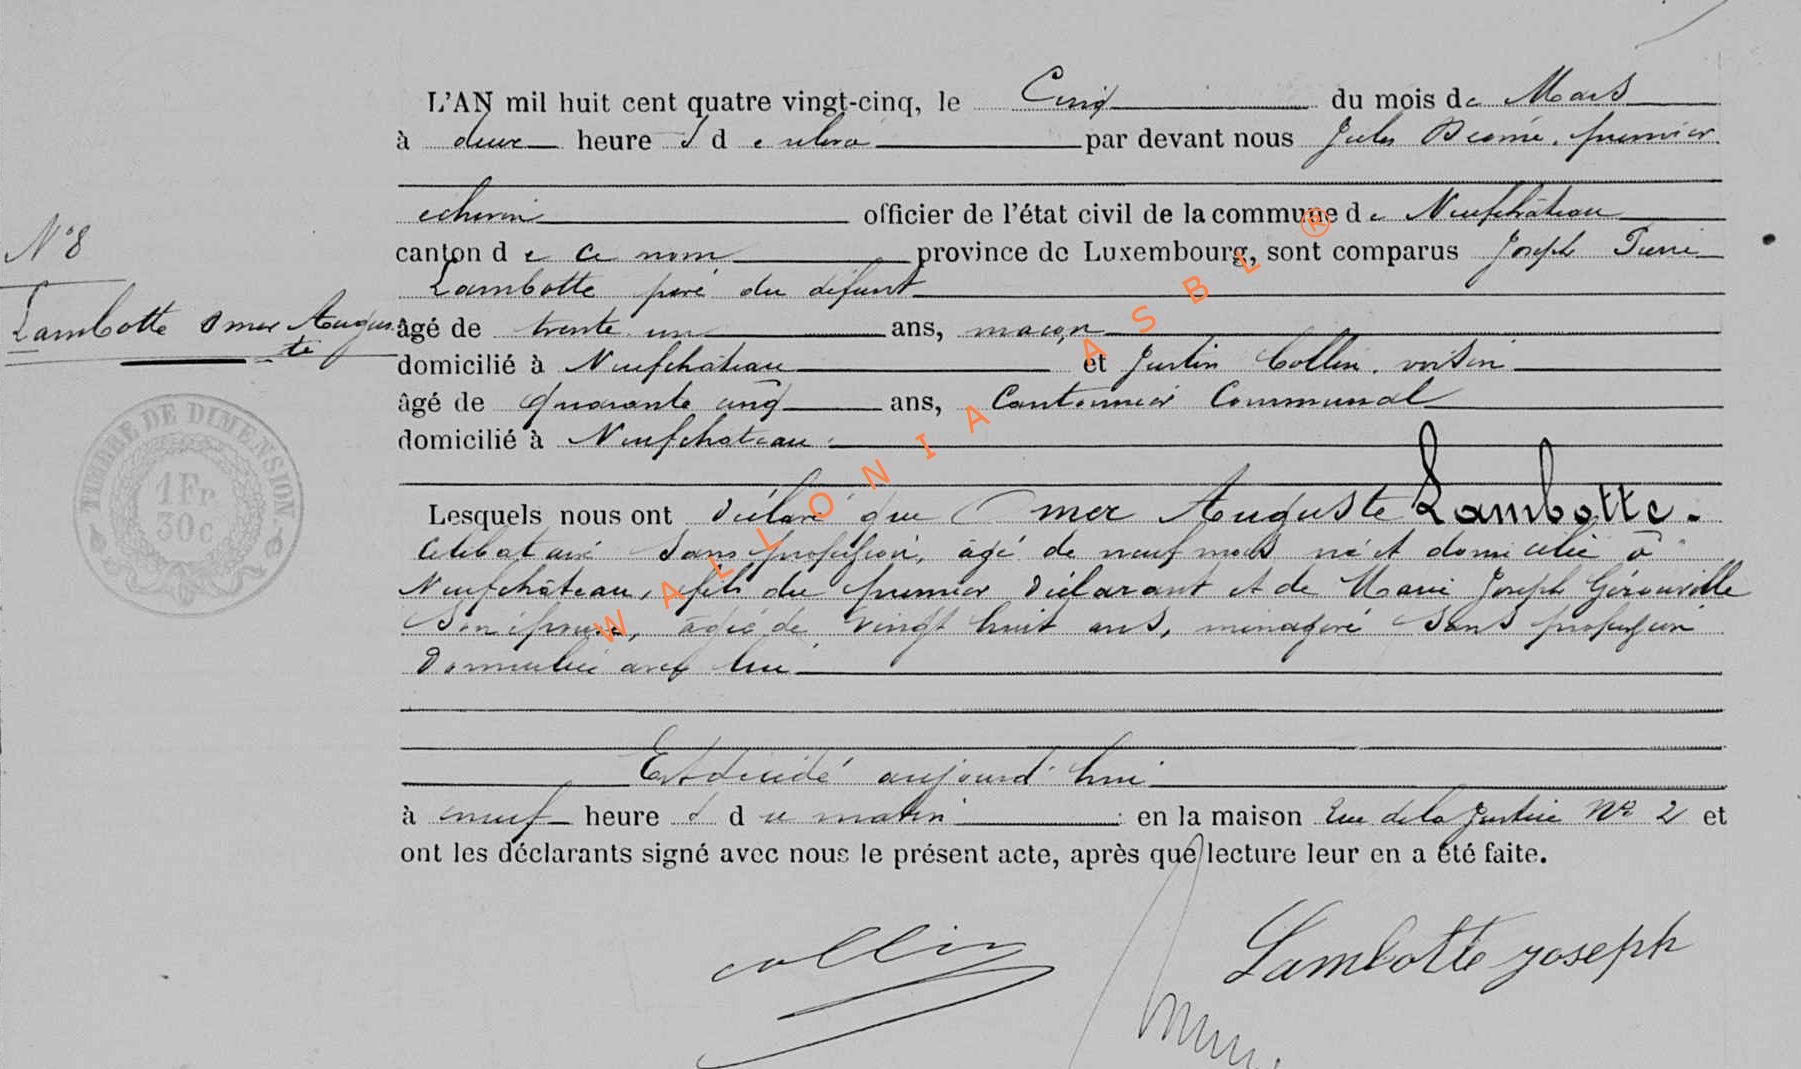 L'AN mil huit cent quatre vingt-cinq, le Cinq du mois de Mars
à deux heures d par devant nous Jules premier
échevin officier de l'état civil de la commune de Neufchâteau
N° 8
canton de ce nom province de Luxembourg, sont comparus Joseph Pierre
Lambotte père du défunt
Lambotte Omer Augus
te
âgé de trente un ans, maçon
domicilié à Neufchâteau et Justin Collin, voisin
âgé de quarante cinq ans, Cantonnier Communal
domicilié à Neufchâteau
TIMBRE DE DIMENSION
1 Fr
30c
Lesquels nous ont déclaré que Omer Auguste Lambotte.
célibataire sans profession, âgé de neuf mois né et domicilié à
Neufchâteau, fils du premier déclarant et de Marie Joseph Gérouville
Son épouse, agée de vingt huit ans, ménagère sans profession
domiciliée avec lui
Est décédé aujourd'hui
à neuf heures du matin en la maison Rue de la Justice N° 2 et
ont les déclarants signé avec nous le présent acte, après que lecture leur en a été faite.
collin
Lambotte joseph
WALLONIA ASBL ®